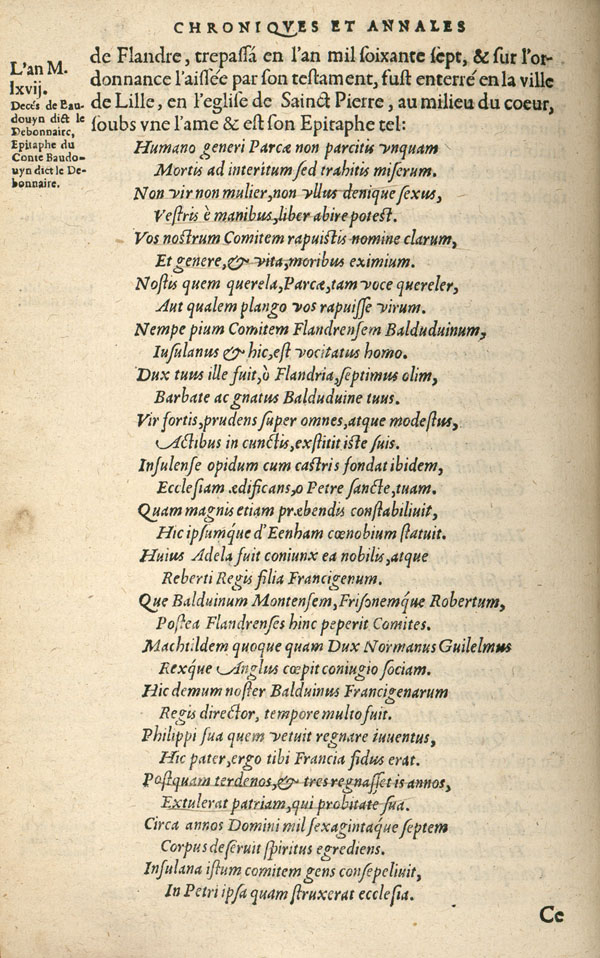 CHRONIQVES ET ANNALES
L'an M.
lxvij.
Decés de Bau-
douyn dict le
Debonnaire,
Epitaphe du
Conte Baudo-
uyn dict le De-
bonnaire.
de Flandre, trepassá en l'an mil soixante sept, & sur l'or-
donnance l'aissée par son testament, fust enterré en la ville
de Lille, en l'eglise de Sainct Pierre, au milieu du coeur,
soubs vne l'ame & est son Epitaphe tel:
Humano generi Parcæ non parcitis vnquam
Mortis ad interitum sed trahitis miserum.
Non vir non mulier, non vllus denique sexus,
Vestris è manibus, liber abire potest.
Vos nostrum Comitem rapuistis nomine clarum,
Et genere, & vita, moribus eximium.
Nostis quem querela, Parcæ, tam voce quereler,
Aut qualem plango vos rapuisse virum.
Nempe pium Comitem Flandrensem Balduduinum,
Iusulanus & hic, est vocitatus homo.
Dux tuus ille fuit, ò Flandria, septimus olim,
Barbate ac gnatus Balduduine tuus.
Vir fortis, prudens super omnes, atque modestus,
Actibus in cunctis, exstitit iste suis.
Insulense opidum cum castris fondat ibidem,
Ecclesiam ædificans, o Petre sancte, tuam.
Quam magnis etiam præbendis constabiliuit,
Hic ipsumq́ue d'Eenham cœnobium statuit.
Huius Adela fuit coniunx ea nobilis, atque
Reberti Regis filia Francigenum.
Que Balduinum Montensem, Frisonemq́ue Robertum,
Postea Flandrenses hinc peperit Comites.
Machtildem quoque quam Dux Normanus Guilelmus
Rexq́ue Anglus cœpit coniugio sociam.
Hic demum noster Balduinus Francigenarum
Regis director, tempore multo fuit.
Philippi sua quem vetuit regnare iuuentus,
Hic pater, ergo tibi Francia fidus erat.
Postquam terdenos, & tres regnasset is annos,
Extulerat patriam, qui probitate sua.
Circa annos Domini mil sexagintaq́ue septem
Corpus deseruit spiritus egrediens.
Insulana istum comitem gens consepeliuit,
In Petri ipsa quam struxerat ecclesia.
Ce